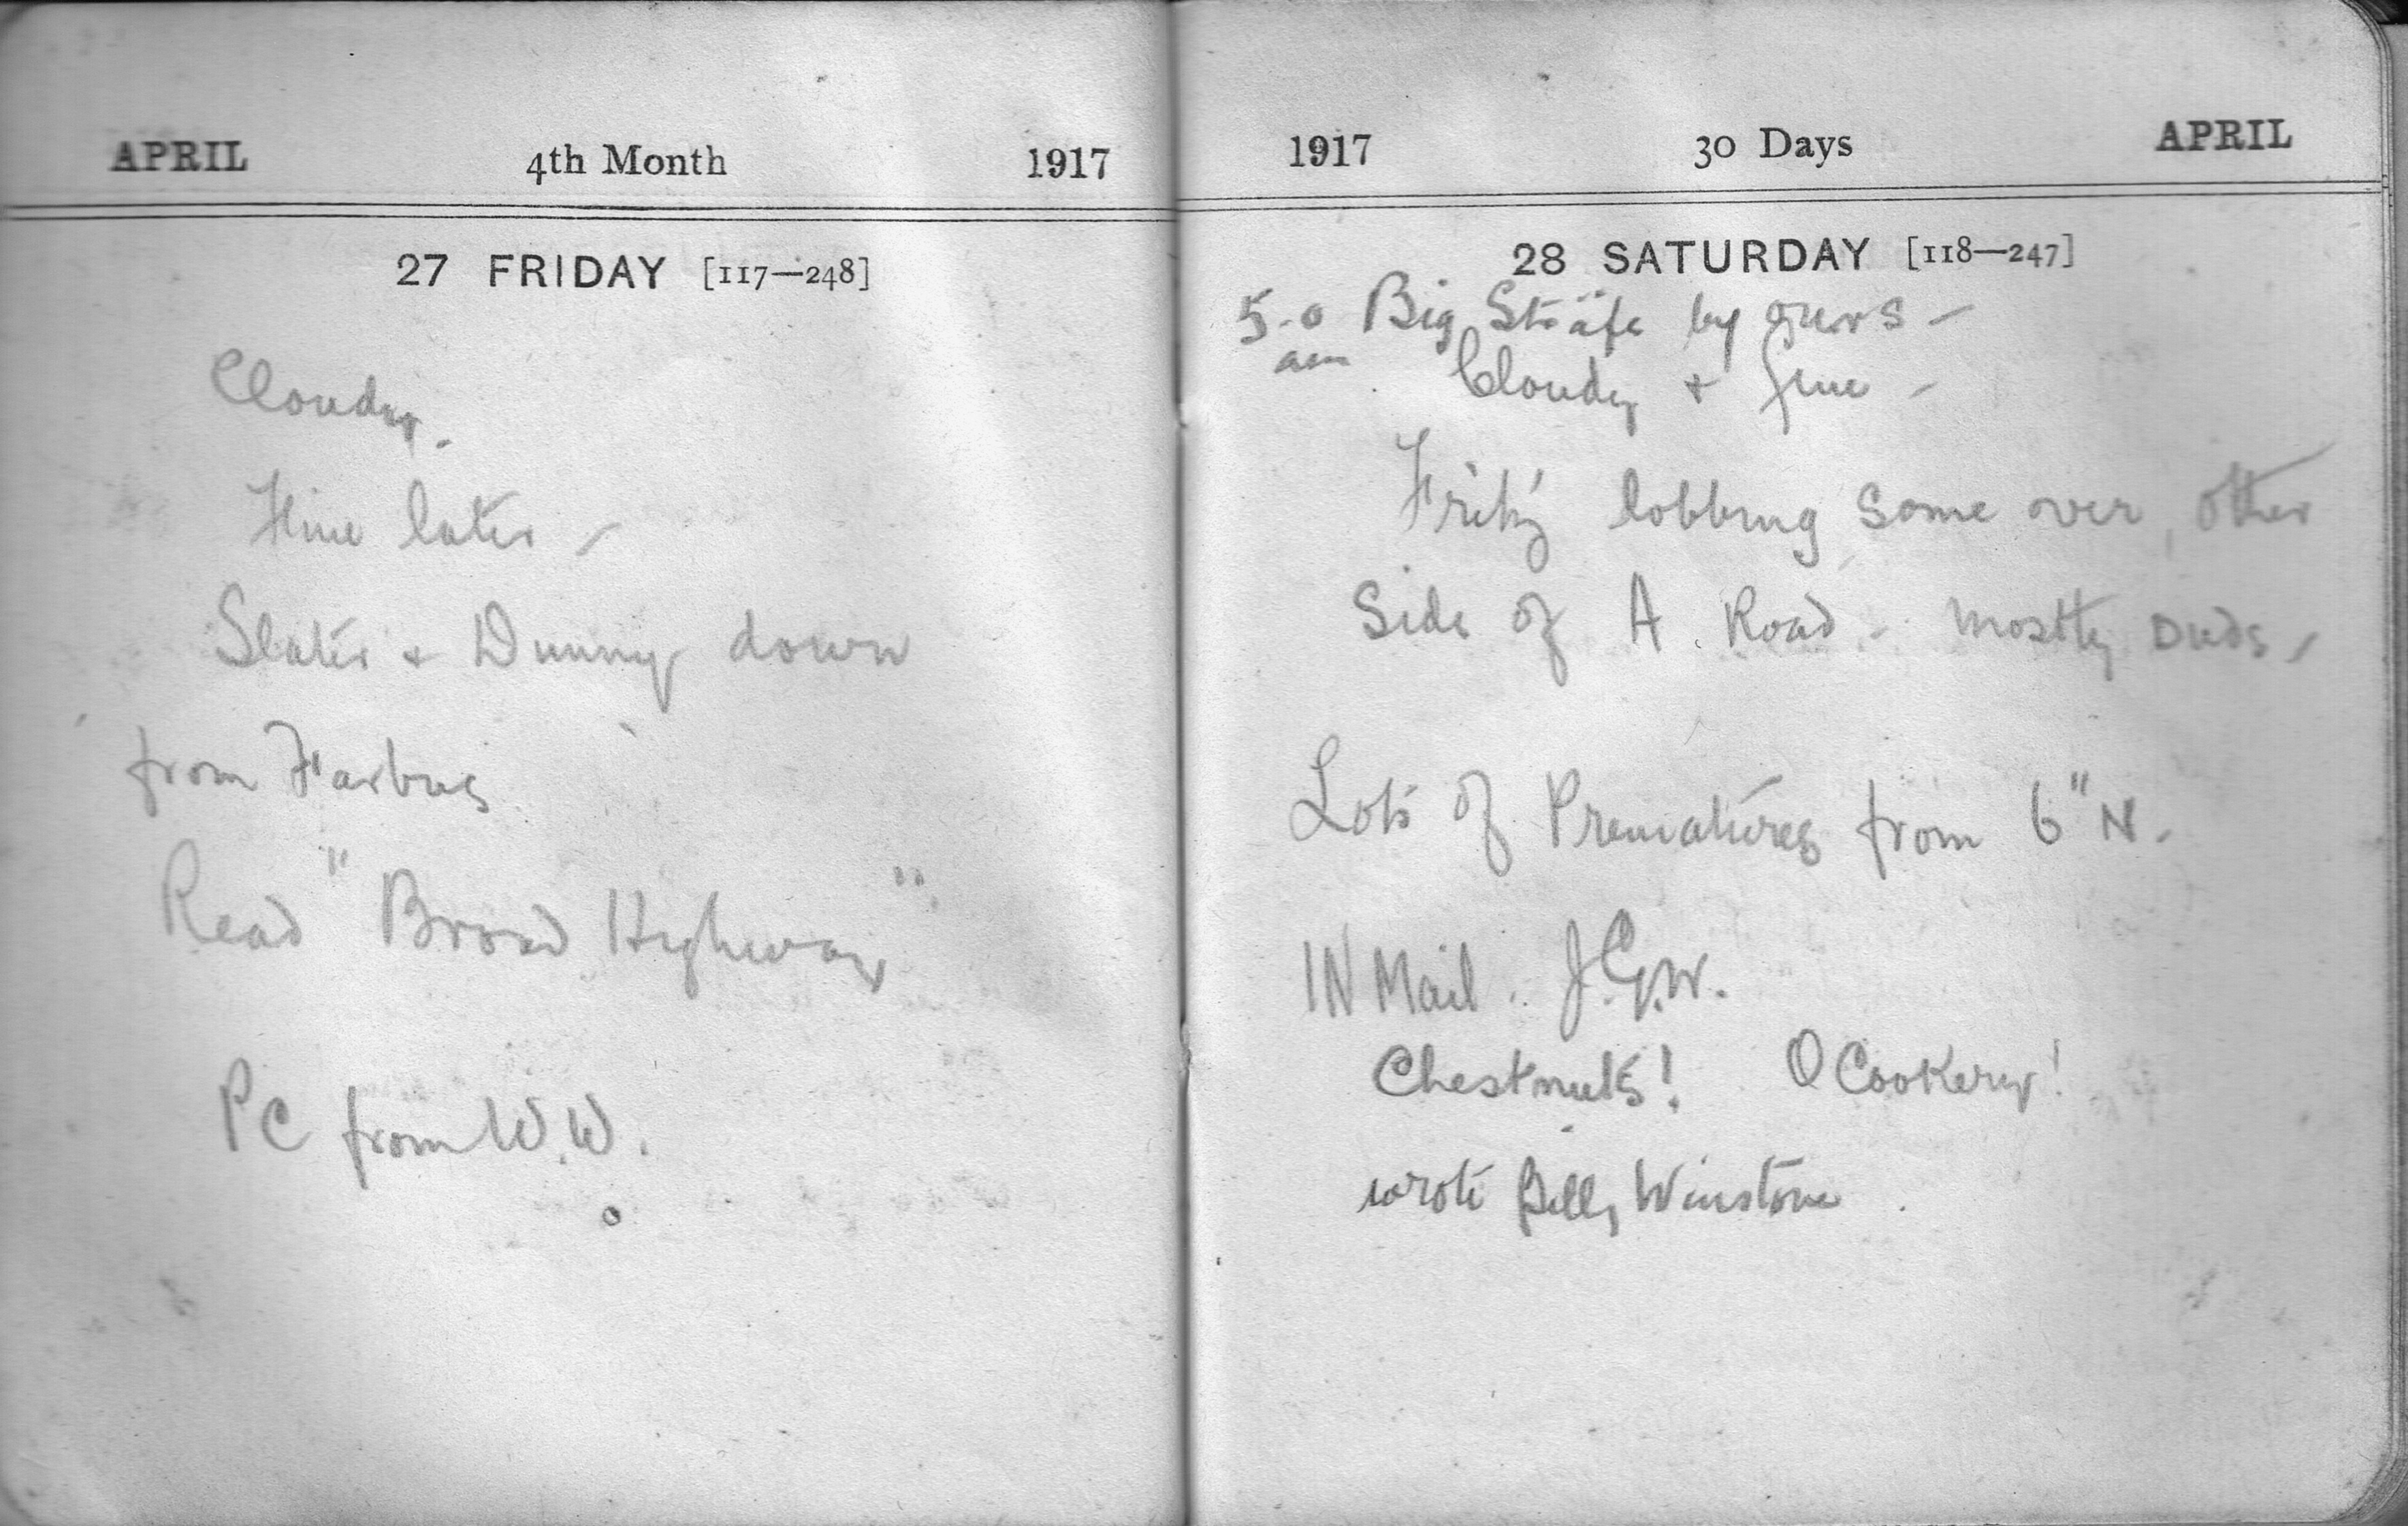 APRIL 4th Month 1917
27 FRIDAY [117—248]
Cloudy.
Fine later -
Slater + Dunny down
from Farbus
Read "Broad Highway"
PC from W.W.
1917 30 Days APRIL
28 SATURDAY [118—247]
5-0 Big Strafe by ours -
am Cloudy + fine -
Fritz lobbing some over, other
Side of A. Road - mostly Duds -
Lots of Prematures from 6" N.
IN Mail. J.G.W.
Chestnuts! O Cookery!
wrote Billy Winstone.